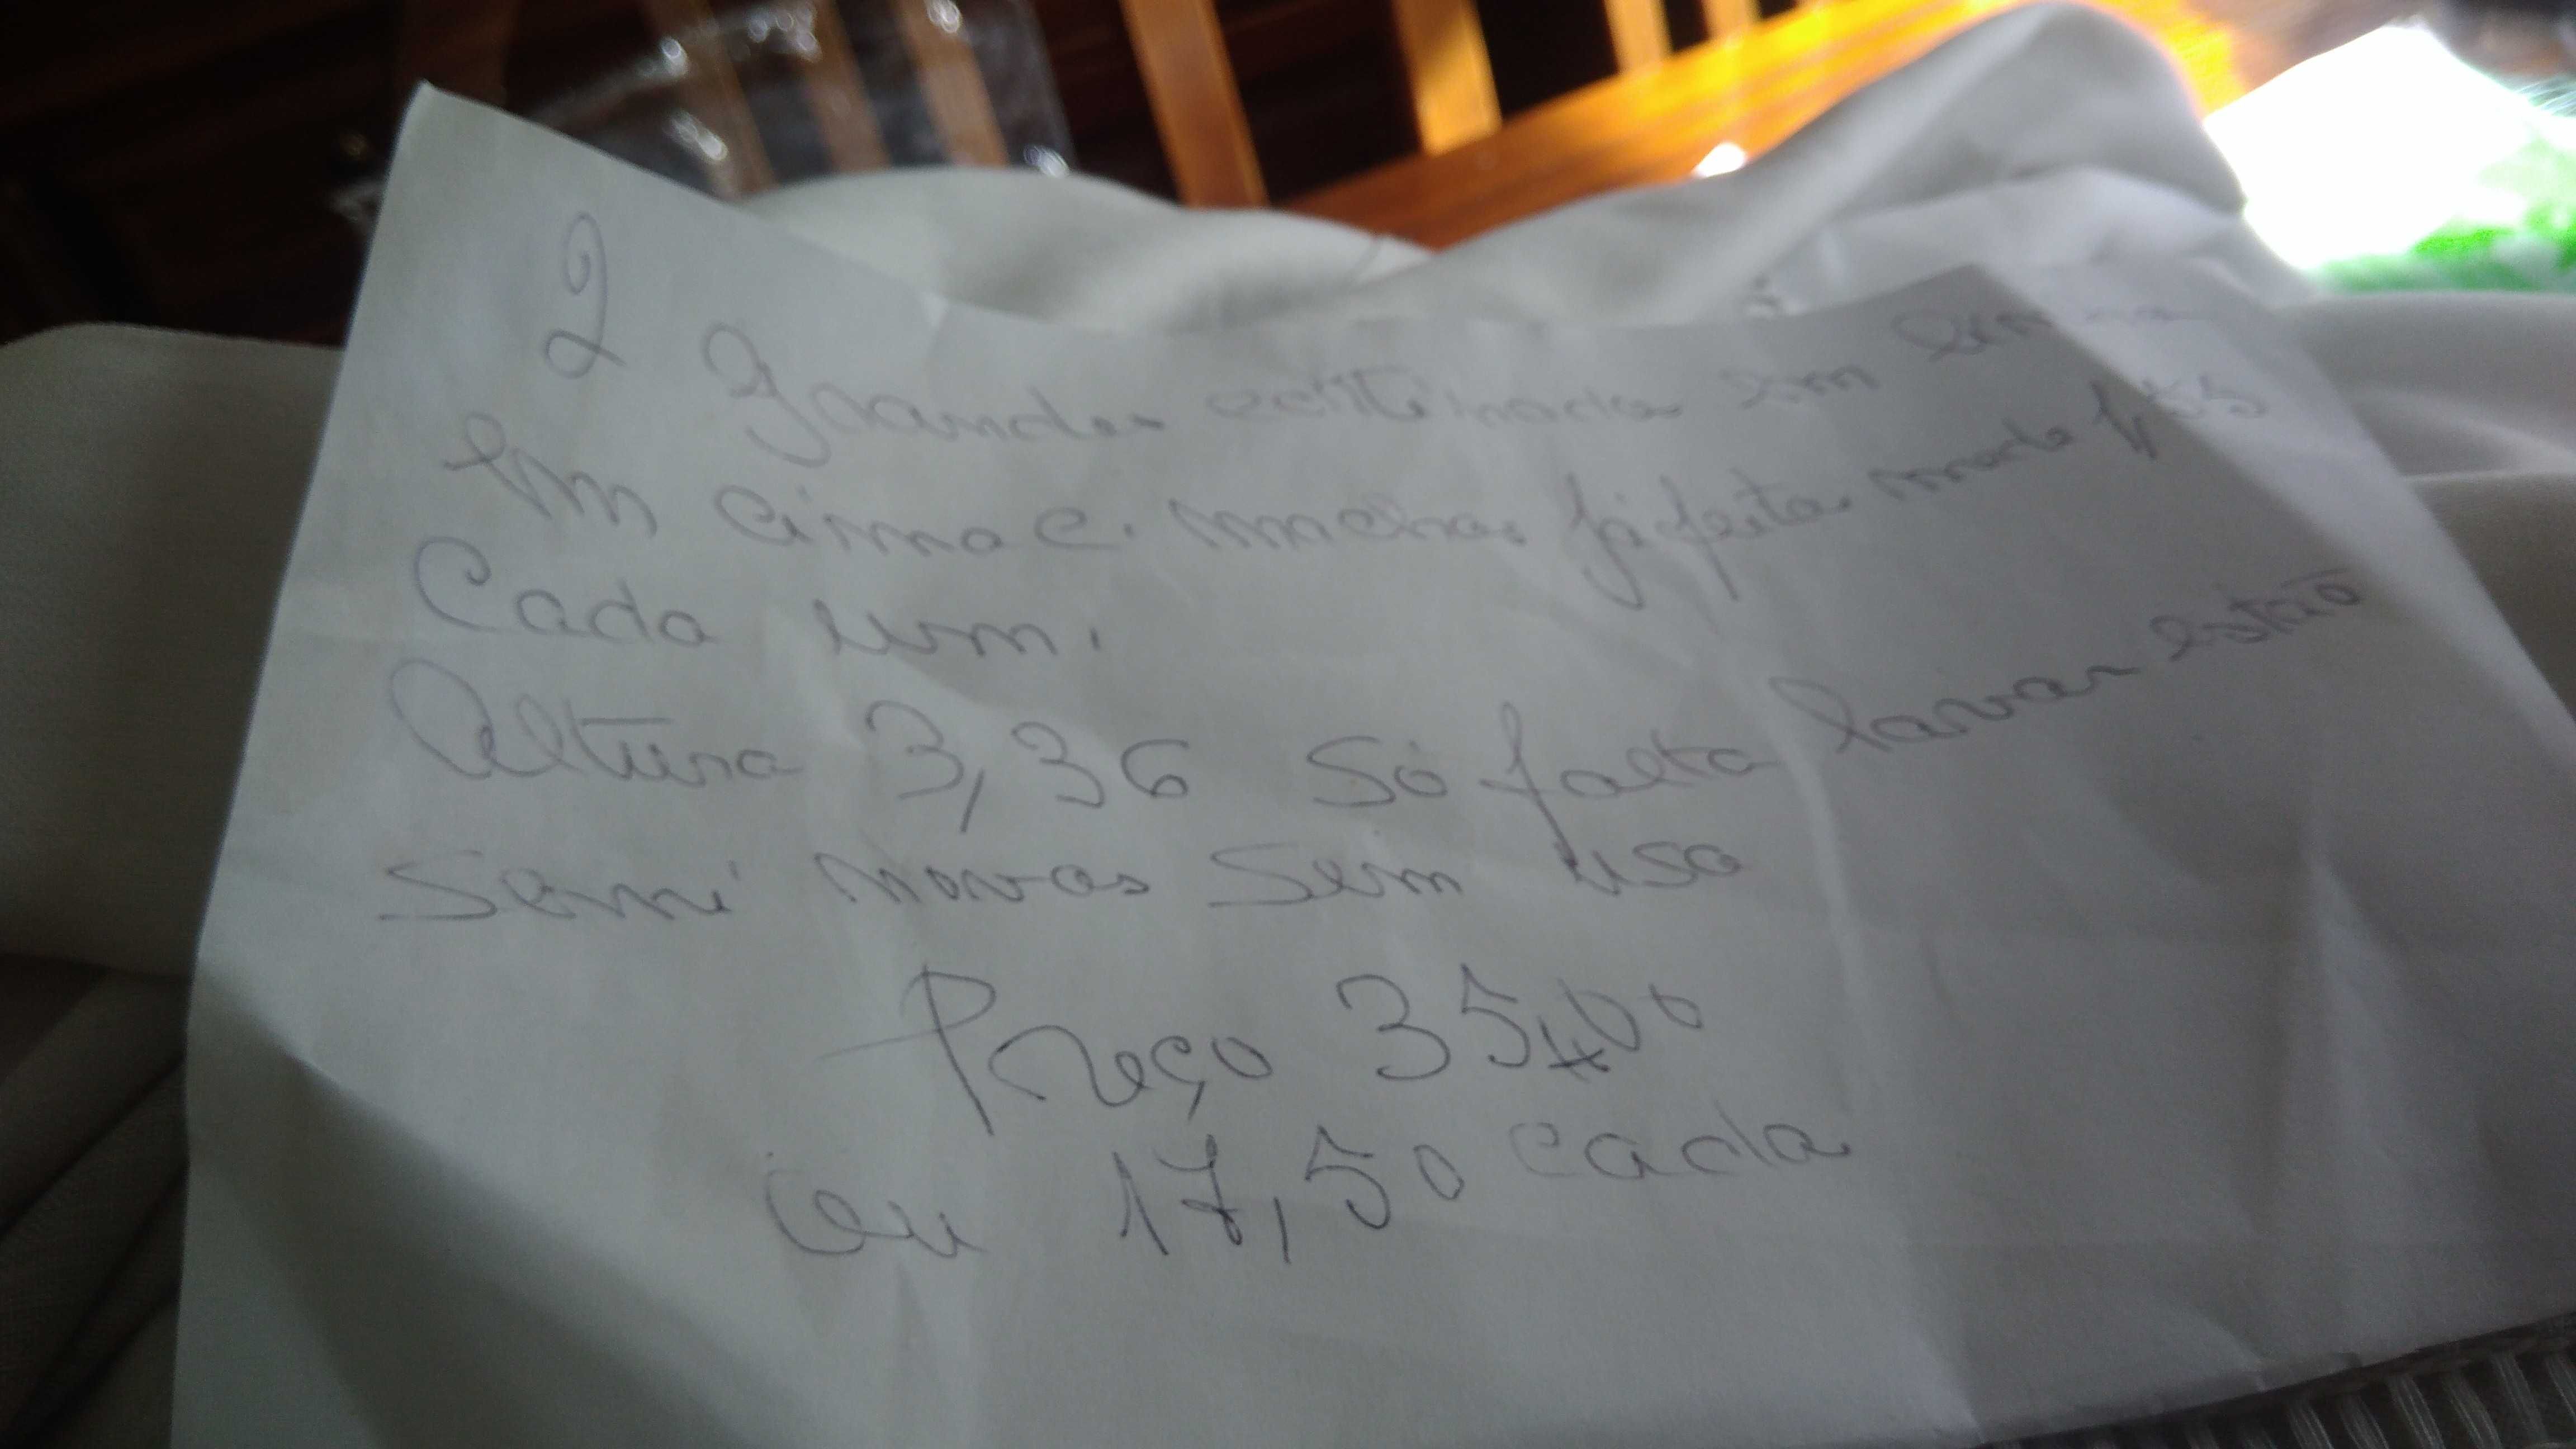 2 Grandes cortinados em
em cima c. mechas já feitas mede 1,55
Cada um.
Altura 3,36 Só falta lavar estão
semi novos sem uso
Preço 35,00
ou 17,50 cada